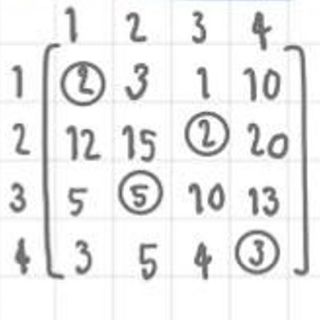 1 2 3 4
1 2 3 1 10
2 12 15 2 20
3 5 5 10 13
4 3 5 4 3